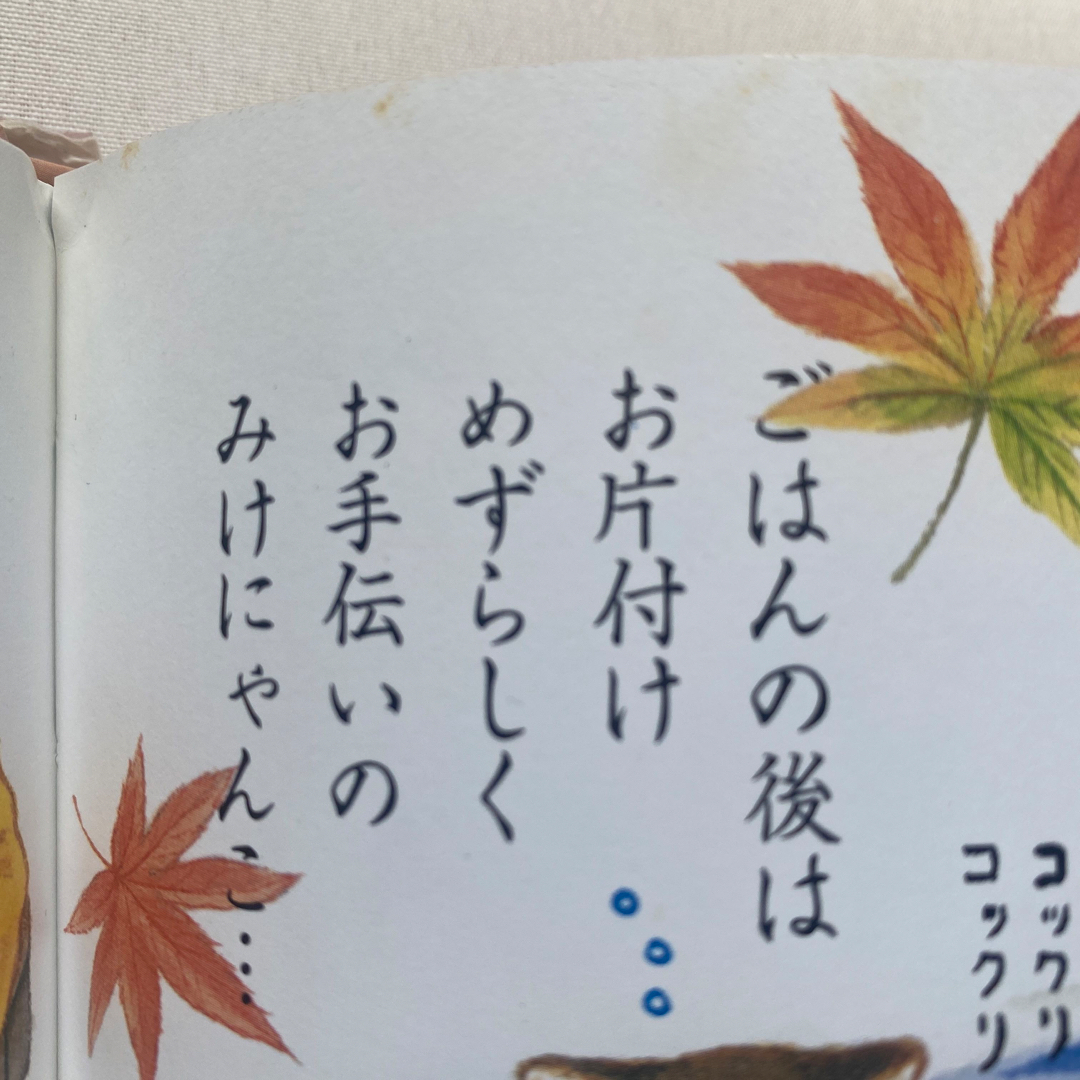 コックリ
コックリ
ごはんの後は
お片付け
めずらしく
お手伝いの
みけにゃんこ…